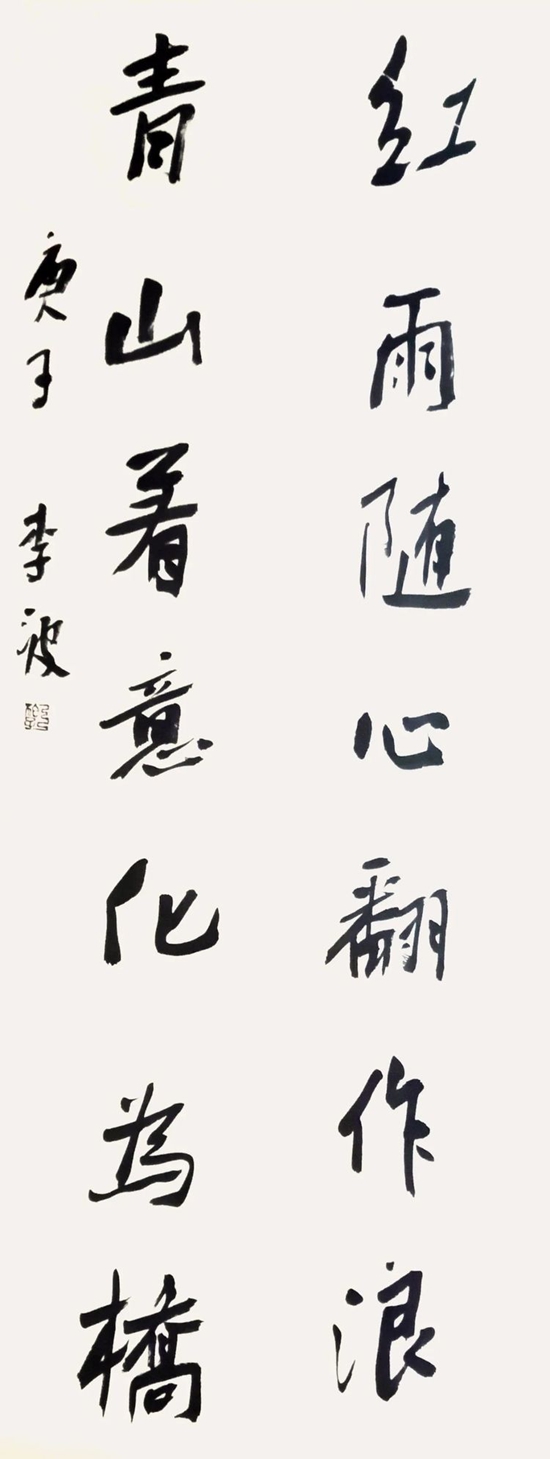 红雨随心翻作浪
青山着意化為橋
庚子 李波